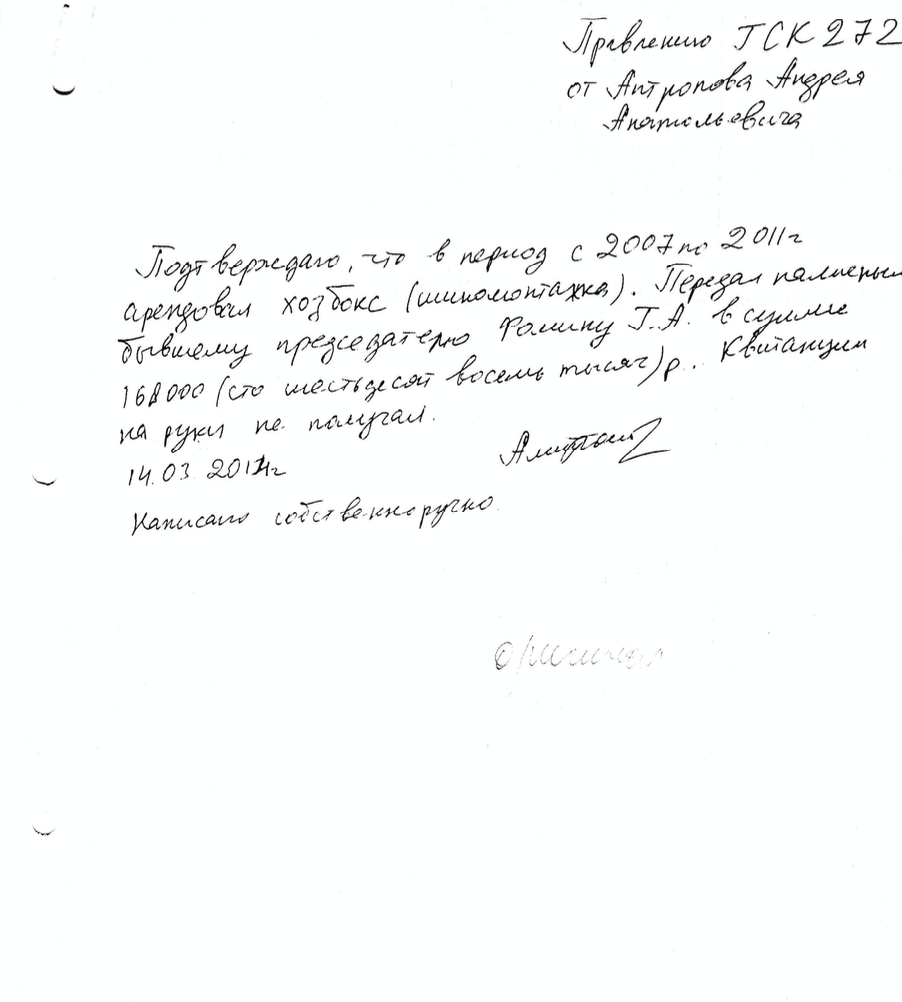 Правлению ГСК 272
от Антропова Андрея
Анатольевича
Подтверждаю, что в период с 2007 по 2011г
арендовал хозбокс (шиномонтажка). Передал наличными
бывшему председателю Фомину Г.А. в сумме
168000 (сто шестьдесят восемь тысяч) р. Квитанции
на руки не получал.
14.03
Написано собственноручно.
Оригинал